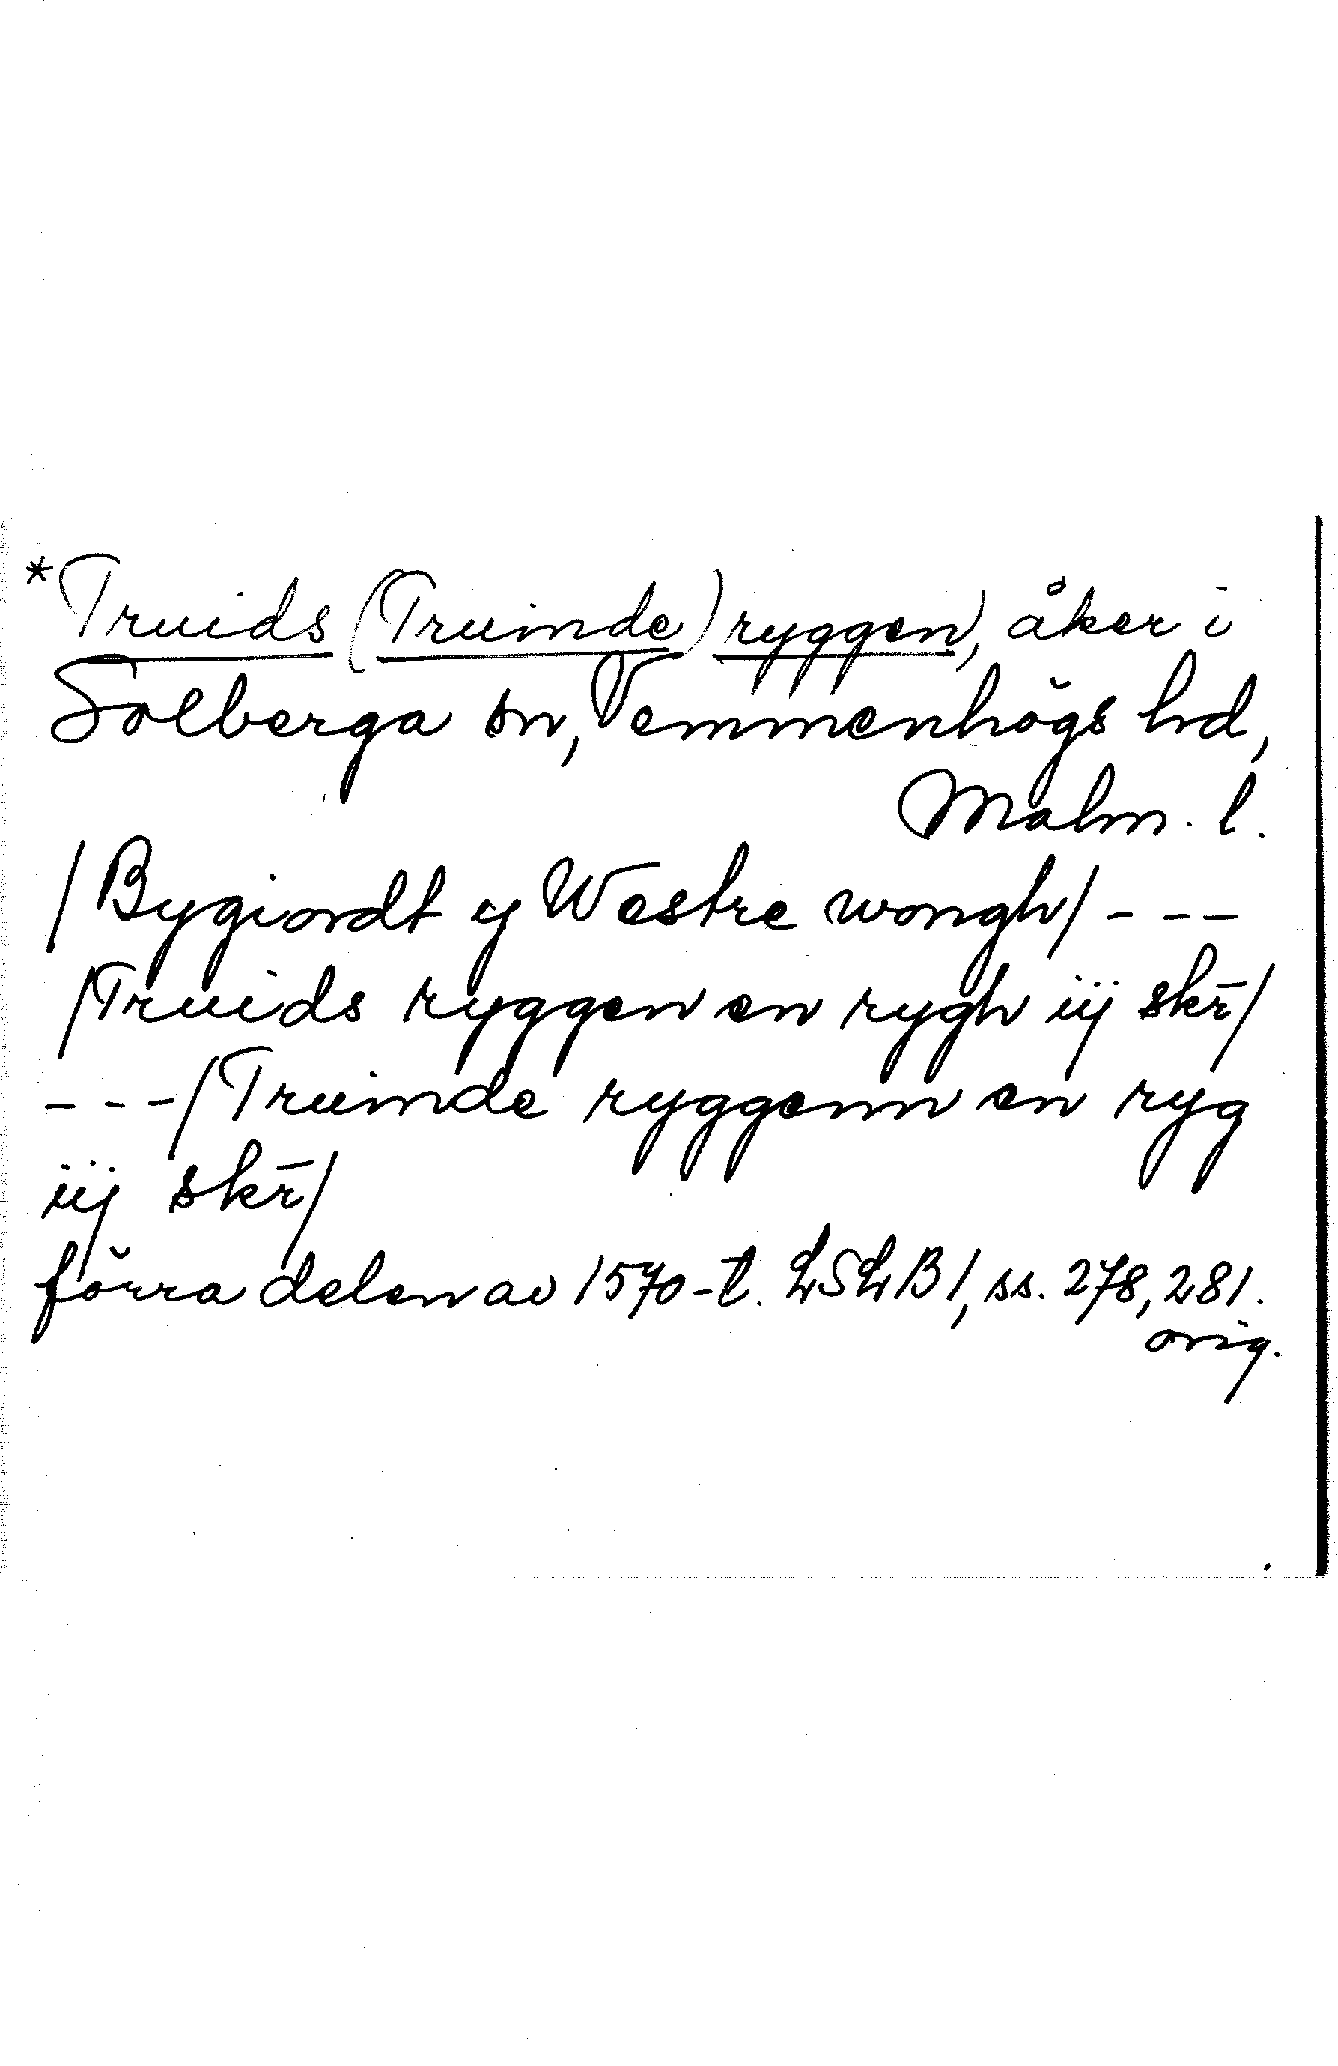 *Truids (Truinde) ryggen, åker i
Solberga sn, Vemmenhögs hd,
Malm. l.
/Bygiordt y Westre wongh/ - - -
/Truids ryggen en rygh iij skr̄/
- - - /Truinde ryggenn en ryg
iij skr̄/
förra delen av 1570-t. LSLB 1, ss. 278, 281.
orig.